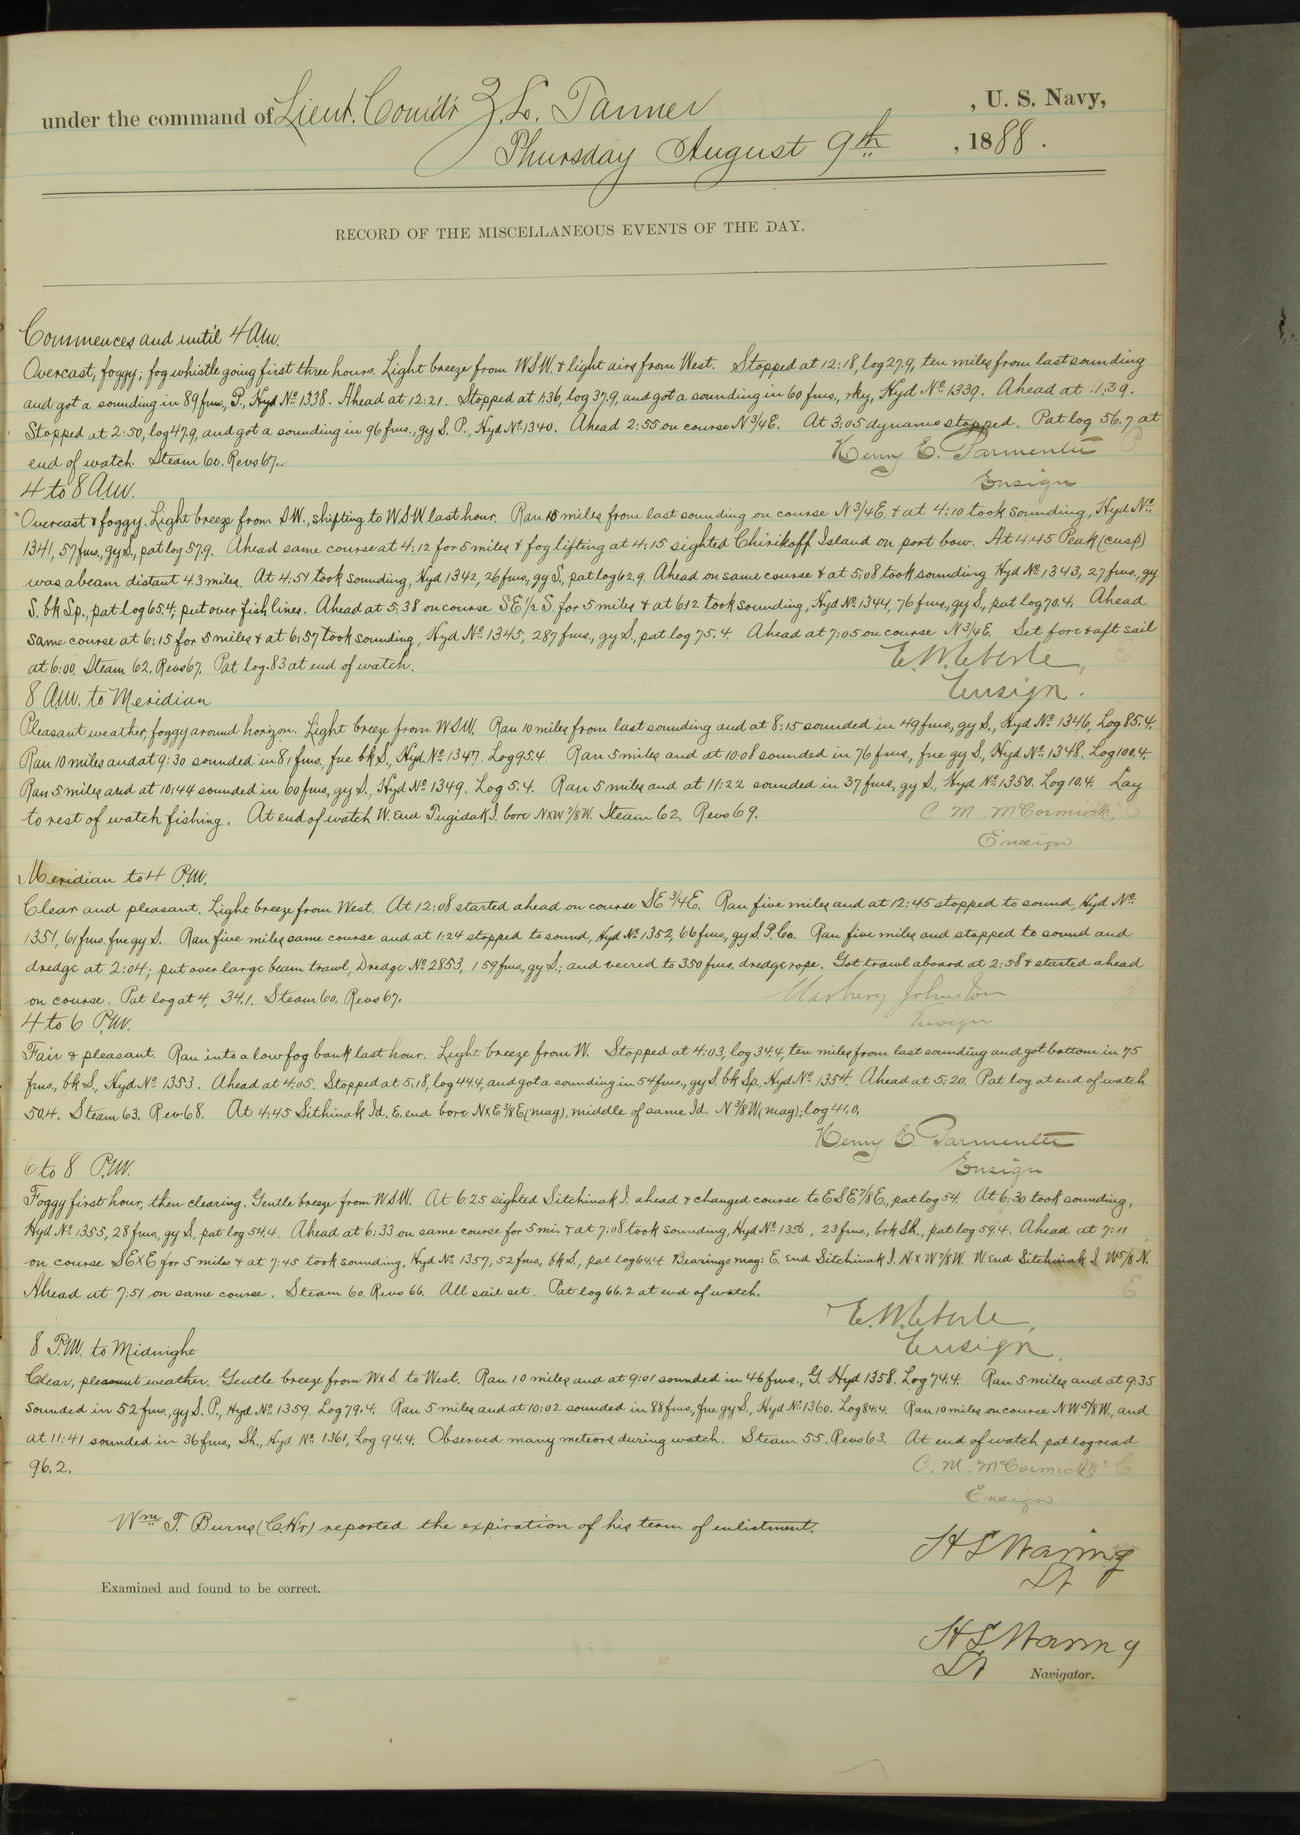 under the command of Lieut. Comd'r Z. L. Tanner, U. S. Navy,
Thursday August 9th, 1888.
RECORD OF THE MISCELLANEOUS EVENTS OF THE DAY.
Commences and until 4 A.M.
Overcast, foggy; fog whistle going first three hours. Light breeze from WSW. & light airs from West. Stopped at 12:18, log 27.9, ten miles from last sounding
and got a sounding in 89 fms, P., Hyd No. 1338. Ahead at 12:21. Stopped at 1:36, log 37.9, and got a sounding in 60 fms., rky, Hyd No. 1339. Ahead at 1:39.
Stopped at 2:50, log 47.9, and got a sounding in 96 fms., gy S. P., Hyd No. 1340. Ahead 2:55 on course N 3/4 E. At 3:05 dynamo stopped. Pat log 56.7 at
end of watch. Steam 60. Revs 67.
Henry E. Parmenter
Ensign
4 to 8 A.M.
Overcast & foggy. Light breeze from SW., shifting to WSW last hour. Ran 10 miles from last sounding on course N 3/4 E. & at 4:10 took sounding, Hyd No.
1341, 57 fms, gy S., pat log 57.9. Ahead same course at 4:12 for 5 miles & fog lifting at 4:15 sighted Chirikoff Island on port bow. At 4:45 Peak (cusp)
was abeam distant 4.3 miles. At 4:51 took sounding, Hyd 1342, 26 fms, gy S., pat log 62.9. Ahead on same course & at 5:08 took sounding Hyd No. 1343, 27 fms., gy
S. bk Sp., pat log 65.4; put over fish lines. Ahead at 5:38 on course SE 1/2 S. for 5 miles & at 6:12 took sounding, Hyd No. 1344, 76 fms., gy S., pat log 70.4. Ahead
same course at 6:15 for 5 miles & at 6:57 took sounding, Hyd No. 1345, 287 fms., gy S., pat log 75.4. Ahead at 7:05 on course N 3/4 E. Set fore & aft sail
at 6:00. Steam 62. Revs 67. Pat log 83 at end of watch.
E. W. Eberle,
Ensign.
8 A.M. to Meridian
Pleasant weather, foggy around horizon. Light breeze from WSW. Ran 10 miles from last sounding and at 8:15 sounded in 49 fms., gy S., Hyd No. 1346, Log 85.4.
Ran 10 miles and at 9:30 sounded in 81 fms. fne bk S., Hyd No. 1347. Log 95.4. Ran 5 miles and at 10:08 sounded in 76 fms., fne gy S., Hyd No. 1348. Log 100.4.
Ran 5 miles and at 10:44 sounded in 60 fms, gy S., Hyd No. 1349. Log 5.4. Ran 5 miles and at 11:22 sounded in 37 fms., gy S., Hyd No. 1350. Log 10.4. Lay
to rest of watch fishing. At end of watch W. End Tugidak I. bore NxW 7/8 W. Steam 62. Revs 69.
C. M. McCormick,
Ensign
Meridian to 4 P.M.
Clear and pleasant. Light breeze from West. At 12:08 started ahead on course SE 3/4 E. Ran five miles and at 12:45 stopped to sound, Hyd No.
1351, 61 fms. fne gy S. Ran five miles same course and at 1:24 stopped to sound, Hyd No. 1352, 66 fms., gy S. P. Co. Ran five miles and stopped to sound and
dredge at 2:04; put over large beam trawl, Dredge No. 2853, 159 fms, gy S.; and veered to 350 fms. dredge rope. Got trawl aboard at 2:58 & started ahead
on course. Pat log at 4, 34.1. Steam 60. Revs 67.
Marbury Johnston
Ensign
4 to 6 P.M.
Fair & pleasant. Ran into a low fog bank last hour. Light breeze from W. Stopped at 4:03, log 34.4, ten miles from last sounding and got bottom in 75
fms., bk S., Hyd No. 1353. Ahead at 4:05. Stopped at 5:18, log 44.4, and got a sounding in 54 fms., gy S. bk Sp., Hyd No. 1354. Ahead at 5:20. Pat log at end of watch
50.4. Steam 63. Rev 68. At 4:45 Sithinak Id. E. end bore NxE 3/8 E (mag), middle of same Id. N 3/8 W (mag); log 41.0.
Henry E Parmenter
Ensign
6 to 8 P.M.
Foggy first hour, then clearing. Gentle breeze from WSW. At 6:25 sighted Sitchinak I. ahead & changed course to ESE 7/8 E., pat log 54. At 6:30 took sounding,
Hyd No. 1355, 28 fms, gy S., pat log 54.4. Ahead at 6:33 on same course for 5 mi. & at 7:08 took sounding, Hyd No. 1356, 23 fms, brk Sh., pat log 59.4. Ahead at 7:11
on course SExE for 5 miles & at 7:45 took sounding, Hyd No. 1357, 52 fms, bk S., pat log 64.4 Bearings mag: E. End Sitchinak I. NxW 7/8 W. W End Sitchinak I. W 5/8 N.
Ahead at 7:51 on same course. Steam 60. Revs 66. All sail set. Pat log 66.2 at end of watch.
E. W. Eberle,
Ensign.
8 P.M. to Midnight
Clear, pleasant weather. Gentle breeze from WxS. to West. Ran 10 miles and at 9:01 sounded in 46 fms., G. Hyd 1358. Log 74.4. Ran 5 miles and at 9:35
sounded in 52 fms., gy S. P., Hyd No. 1359. Log 79.4. Ran 5 miles and at 10:02 sounded in 88 fms, fne gy S., Hyd No. 1360. Log 84.4. Ran 10 miles on course NW 5/8 W., and
at 11:41 sounded in 36 fms, Sh., Hyd No. 1361, Log 94.4. Observed many meteors during watch. Steam 55. Revs 63. At end of watch pat log read
96.2.
C. M. McCormick
Ensign
Wm T. Burns (C.Hr) reported the expiration of his term of enlistment.
H S Waring
Lt
Examined and found to be correct.
H S Waring
Lt Navigator.